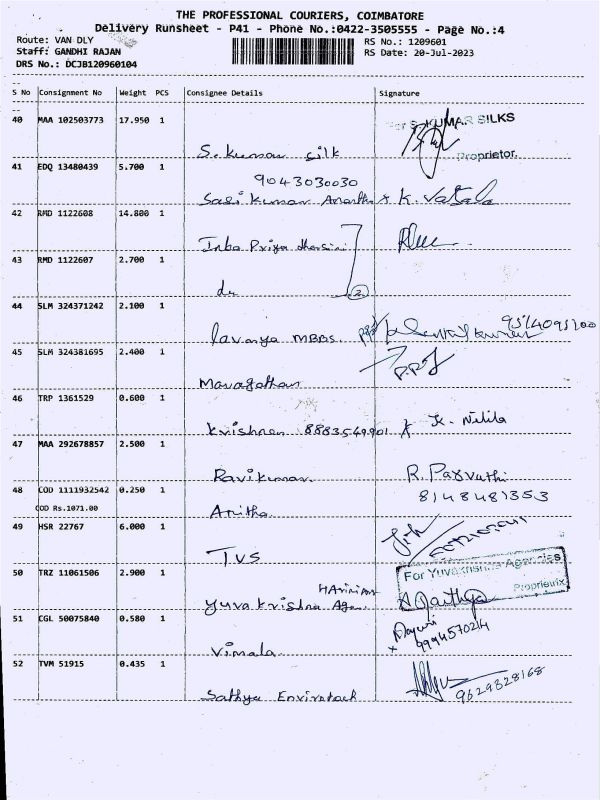 THE PROFESSIONAL COURIERS, COIMBATORE
Delivery Runsheet - P41 - Phone No.:0422-3505555 - Page No.:4
Route: VAN DLY
RS No.: 1209601
Staff: GANDHI RAJAN
RS Date: 20-Jul-2023
DRS No.: DCJB120960104
S No Consignment No Weight PCS Consignee Details Signature
40 MAA 102503773 17.950 1
For S. KUMAR SILKS
Proprietor.
S. Kumar Silk
41 EDQ 13480439 5.700 1
9043030030
Sasi Kumar K.
42 RMD 1122608 14.800 1
Inba Priya
43 RMD 1122607 2.700 1
do 2
44 SLM 324371242 2.100 1
lavanya MBBS.
45 SLM 324381695 2.400 1
Maragathan
46 TRP 1361529 0.600 1
Krishnan 8883549901
47 MAA 292678857 2.500 1
Ravikumar R. Parvathi
8148481353
48 COD 1111932542 0.250 1
COD Rs.1071.00
Anitha
49 HSR 22767 6.000 1
TVS
50 TRZ 11061506 2.900 1
For Yuvakrishna Agencies
Proprietrix
Yuva Krishna Agen
51 CGL 50075840 0.580 1
Vimala
52 TVM 51915 0.435 1
9629328168
Sathya